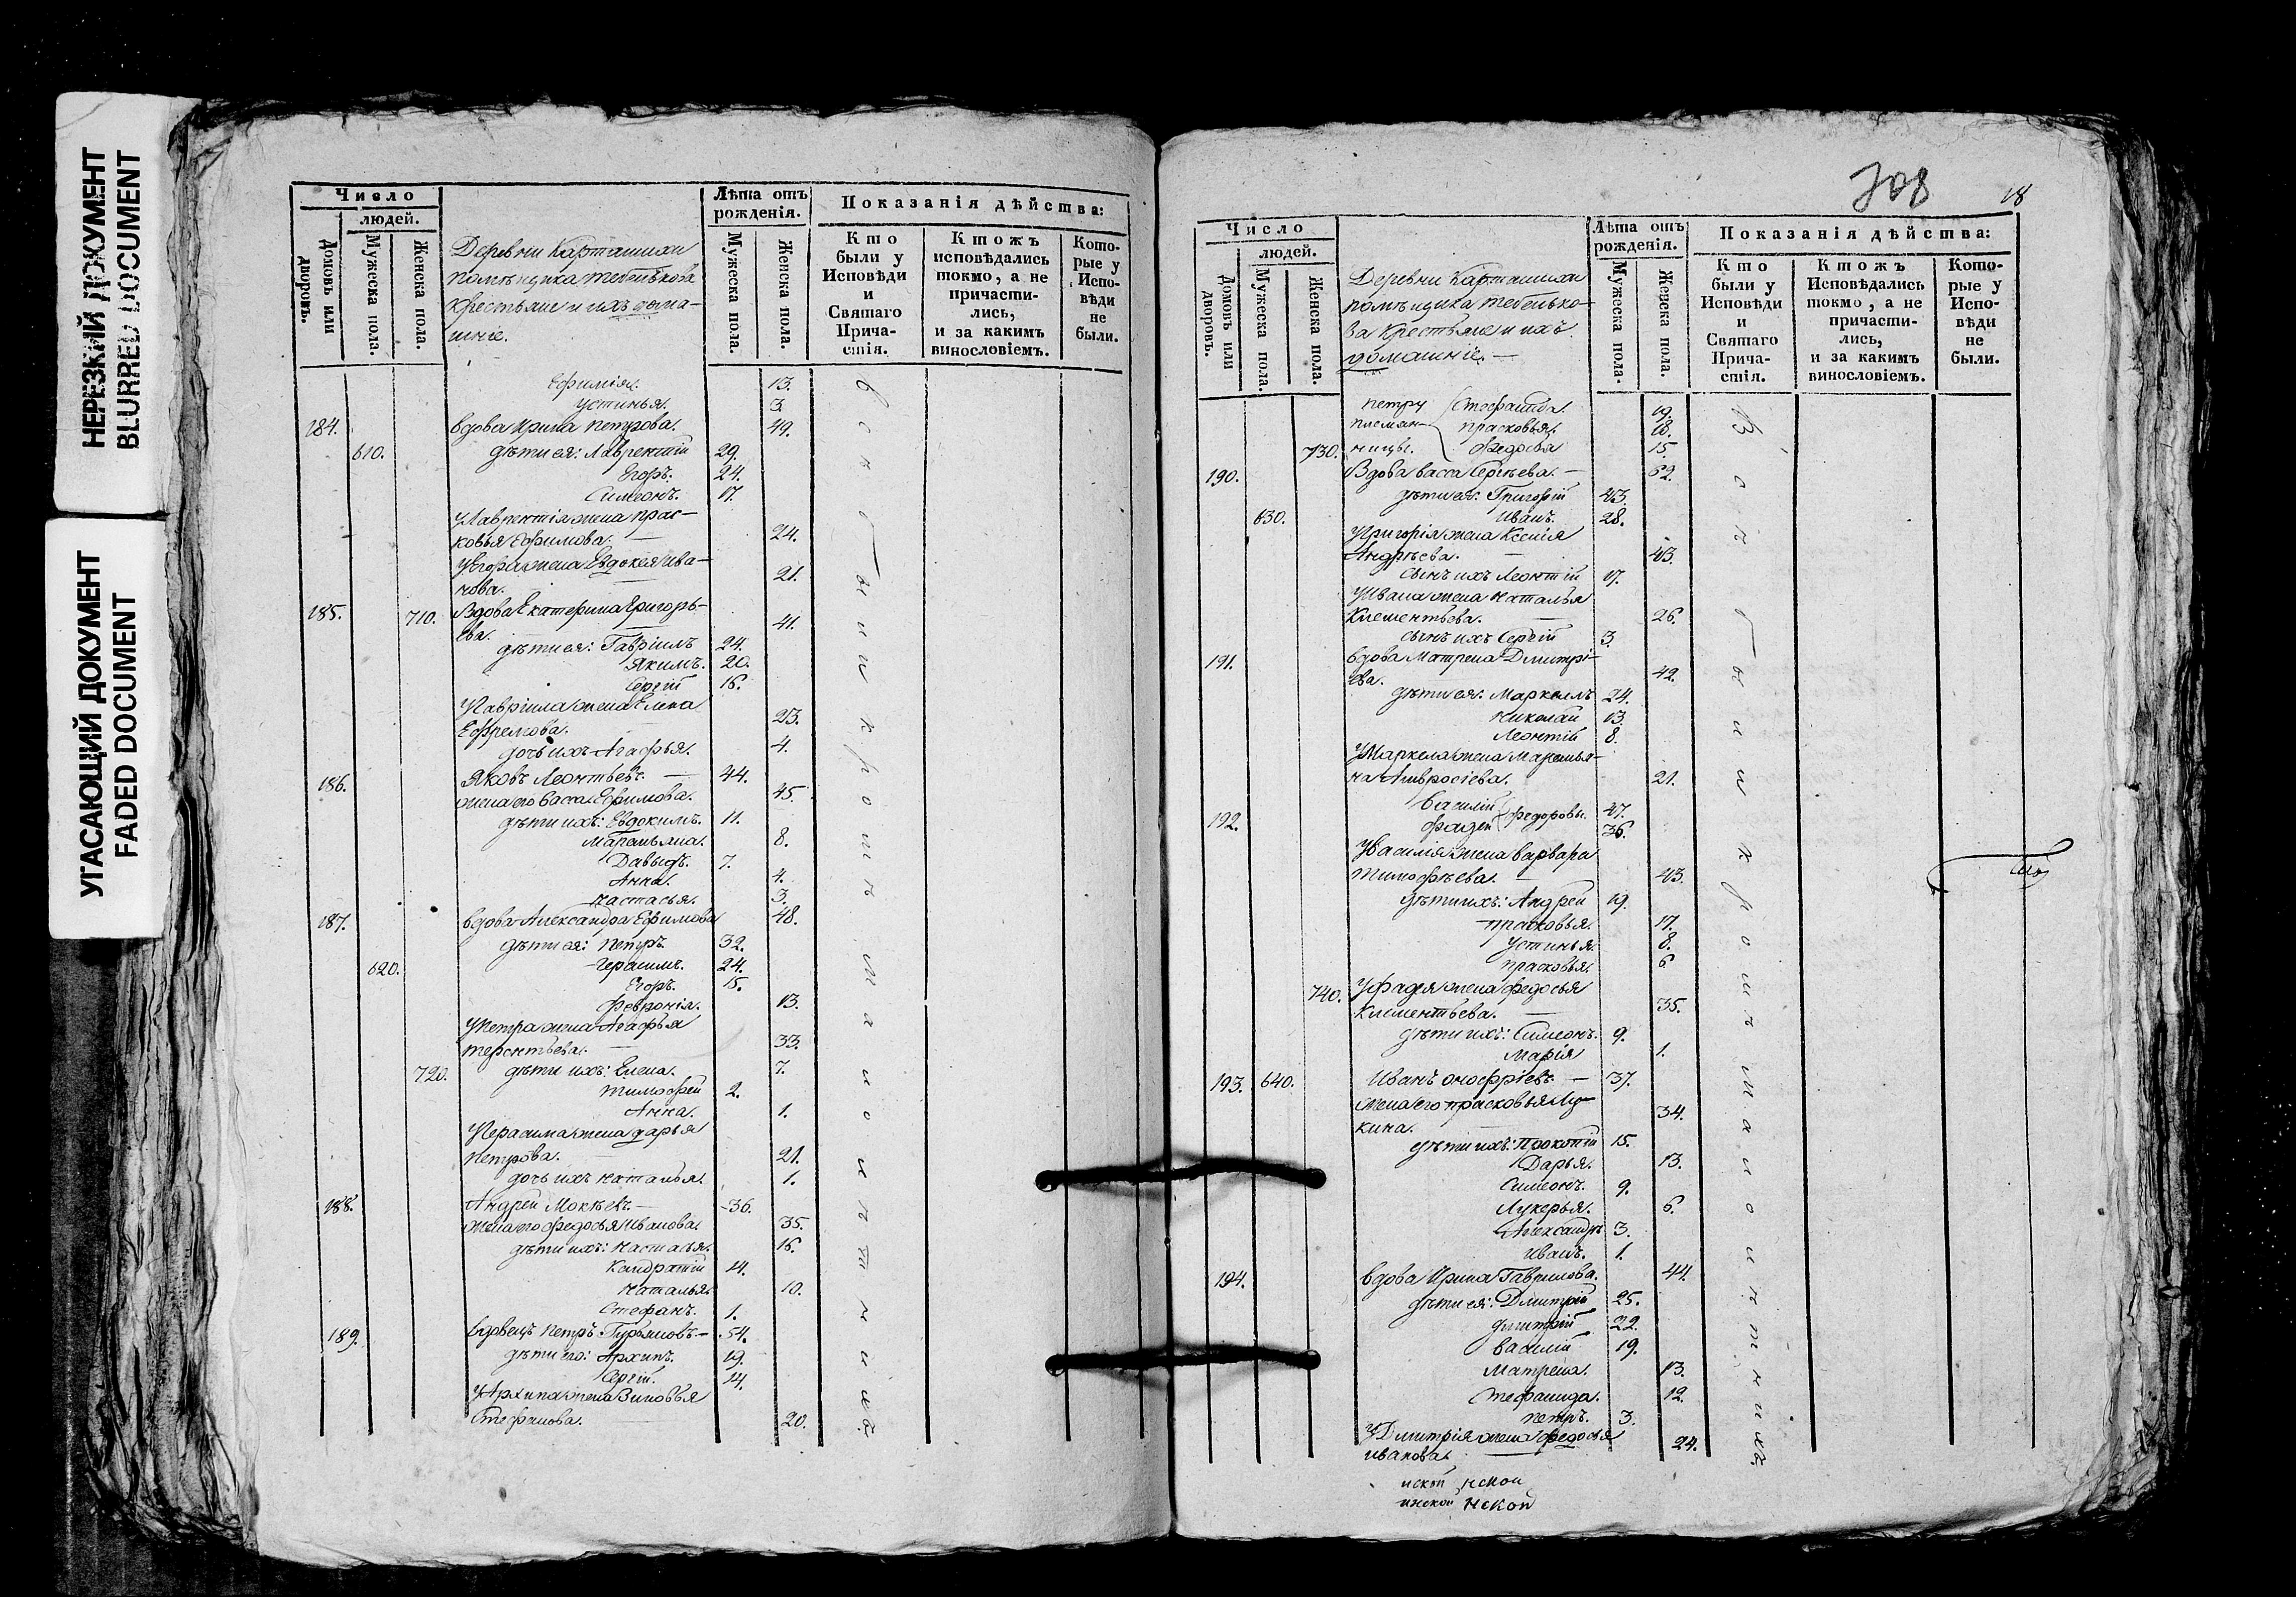 НЕРЕЗКИЙ ДОКУМЕНТ
BLURRED DOCUMENT
УГАСАЮЩИЙ ДОКУМЕНТ
FADED DOCUMENT
Число
людей.
Домовъ или дворовъ.
Мужеска пола.
Женска пола.
Деревни Карташихи
помѣщика Тебенькова
крестьяне и ихъ дома-
шніе.
Лѣта отъ рожденія.
Мужеска пола.
Женска пола.
Показанія дѣйства:
Кто были у Исповѣди и Святаго Прича-стія.
Ктожъ исповѣдались токмо, а не причасти-лись, и за какимъ винословіемъ.
Кото-рые у Испо-вѣди не были.
Ефимія. 13.
Устинья. 3.
184. Вдова Ирина Петрова. 49.
610. дѣти ея: Лаврентій 29.
Егоръ. 24.
Симеонъ. 17.
У Лаврентія жена Прас-
ковья Ефимова. 24.
У Егора жена Евдокея Ива-
нова. 21.
185. 710. Вдова Екатерина Григорь-
ева. 41.
дѣти ея: Гавріилъ 24.
Якимъ. 20.
Сергій 16.
У Гавріила жена Елена
Ефремова. 23.
дочь ихъ Агафья. 4.
186. Яковъ Леонтьевъ. 44.
жена его Васса Ефимова. 45.
дѣти ихъ: Евдокимъ. 11.
Маремьяна. 8.
Давыдъ. 7.
Анна. 4.
Настасья. 3.
187. Вдова Александра Ефимова 48.
дѣти ея: Петръ. 32.
620. Герасимъ. 24.
Егоръ. 15.
Февронія. 13.
У Петра жена Агафья
Терентьева. 33.
720. дѣти ихъ: Елена. 7.
Тимофей 2.
Анна. 1.
У Герасима жена Дарья
Петрова. 21.
дочь ихъ Наталья. 1.
188. Андрей Мокѣевъ. 36.
жена его Федосья Иванова 35.
дѣти ихъ: Настасья. 16.
Кондратій 14.
Наталья 10.
Стефанъ. 1.
189. Вдовецъ Петръ Гурьяновъ 54.
дѣти его: Архипъ. 19.
Сергій. 14.
У Архипа жена Зиновья
Стефанова. 20.
708
18
Число
людей.
Домовъ или дворовъ.
Мужеска пола.
Женска пола.
Деревни Карташихи
помѣщика Тебенько-
ва крестьяне и ихъ
домашніе.
Лѣта отъ рожденія.
Мужеска пола.
Женска пола.
Показанія дѣйства:
Кто были у Исповѣди и Святаго Прича-стія.
Ктожъ Исповѣдались токмо, а не причасти-лись, и за какимъ винословіемъ.
Кото-рые у Испо-вѣди не были.
Петру Стефанида. 19.
племян- Прасковья. 18.
730. ницы. Федосья 15.
190. Вдова Васса Сергѣева. 62.
дѣти ея: Григорій 43.
630. Иванъ. 28.
У Григорія жена Ксенія
Андрѣева. 43.
сынъ ихъ Леонтій 17.
У Ивана жена Наталья
Клементьева. 26.
сынъ ихъ Сергій 3.
191. Вдова Матрена Дмитрі-
ева. 42.
дѣти ея: Маркелъ 24.
Николай 13.
Леонтій 8.
У Маркела жена Маремья-
на Амвросіева. 21.
192. Василій Федоровы. 47.
Фадей 36.
У Василія жена Варвара
Тимофѣева. 43.
дѣти ихъ: Андрей 19.
Прасковья. 17.
Устинья. 8.
Прасковья. 6.
740. У Фадея жена Федосья
Клементьева. 35.
дѣти ихъ: Симеонъ. 9.
Марія 1.
193. 640. Иванъ Онофріевъ. 37.
Жена его Прасковья Лу-
кина. 34.
дѣти ихъ: Прокопій 15.
Дарья. 13.
Симеонъ. 9.
Лукерья. 6.
Александръ 3.
Иванъ. 1.
194. Вдова Ирина Гаврилова. 44.
дѣти ея: Дмитрій 25.
Дмитрій 22.
Василій 19.
Матрена. 13.
Стефанида. 12.
Петръ. 3.
У Дмитрія жена Федосья
Иванова. 24.